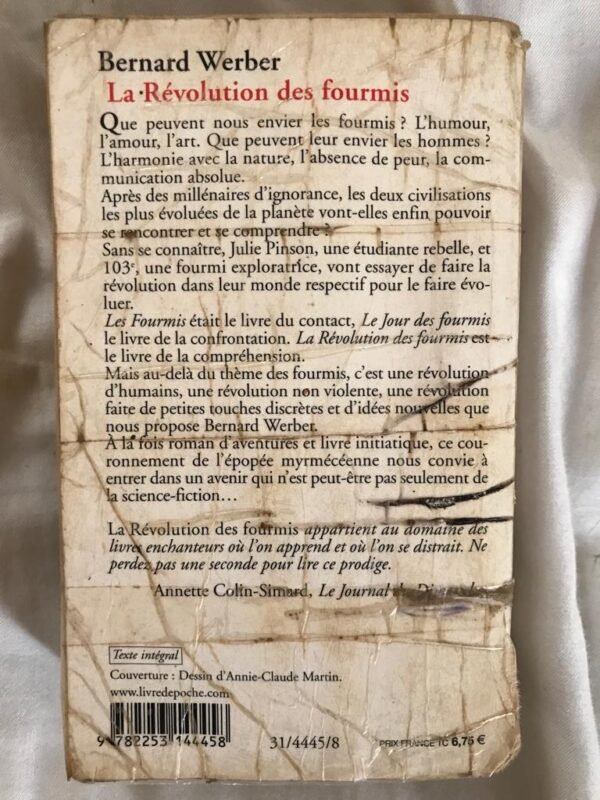 Bernard Werber
La Révolution des fourmis
Que peuvent nous envier les fourmis ? L'humour,
l'amour, l'art. Que peuvent leur envier les hommes ?
L'harmonie avec la nature, l'absence de peur, la com-
munication absolue.
Après des millénaires d'ignorance, les deux civilisations
les plus évoluées de la planète vont-elles enfin pouvoir
se rencontrer et se comprendre ?
Sans se connaître, Julie Pinson, une étudiante rebelle, et
103e, une fourmi exploratrice, vont essayer de faire la
révolution dans leur monde respectif pour le faire évo-
luer.
Les Fourmis était le livre du contact, Le Jour des fourmis
le livre de la confrontation. La Révolution des fourmis est
le livre de la compréhension.
Mais au-delà du thème des fourmis, c'est une révolution
d'humains, une révolution non violente, une révolution
faite de petites touches discrètes et d'idées nouvelles que
nous propose Bernard Werber.
À la fois roman d'aventures et livre initiatique, ce cou-
ronnement de l'épopée myrmécéenne nous convie à
entrer dans un avenir qui n'est peut-être pas seulement de
la science-fiction…
La Révolution des fourmis appartient au domaine des
livres enchanteurs où l'on apprend et où l'on se distrait. Ne
perdez pas une seconde pour lire ce prodige.
Annette Colin-Simard, Le Journal du Dimanche
Texte intégral
Couverture : Dessin d'Annie-Claude Martin.
www.livredepoche.com
9 782253 144458
31/4445/8
PRIX FRANCE TC 6,75 €